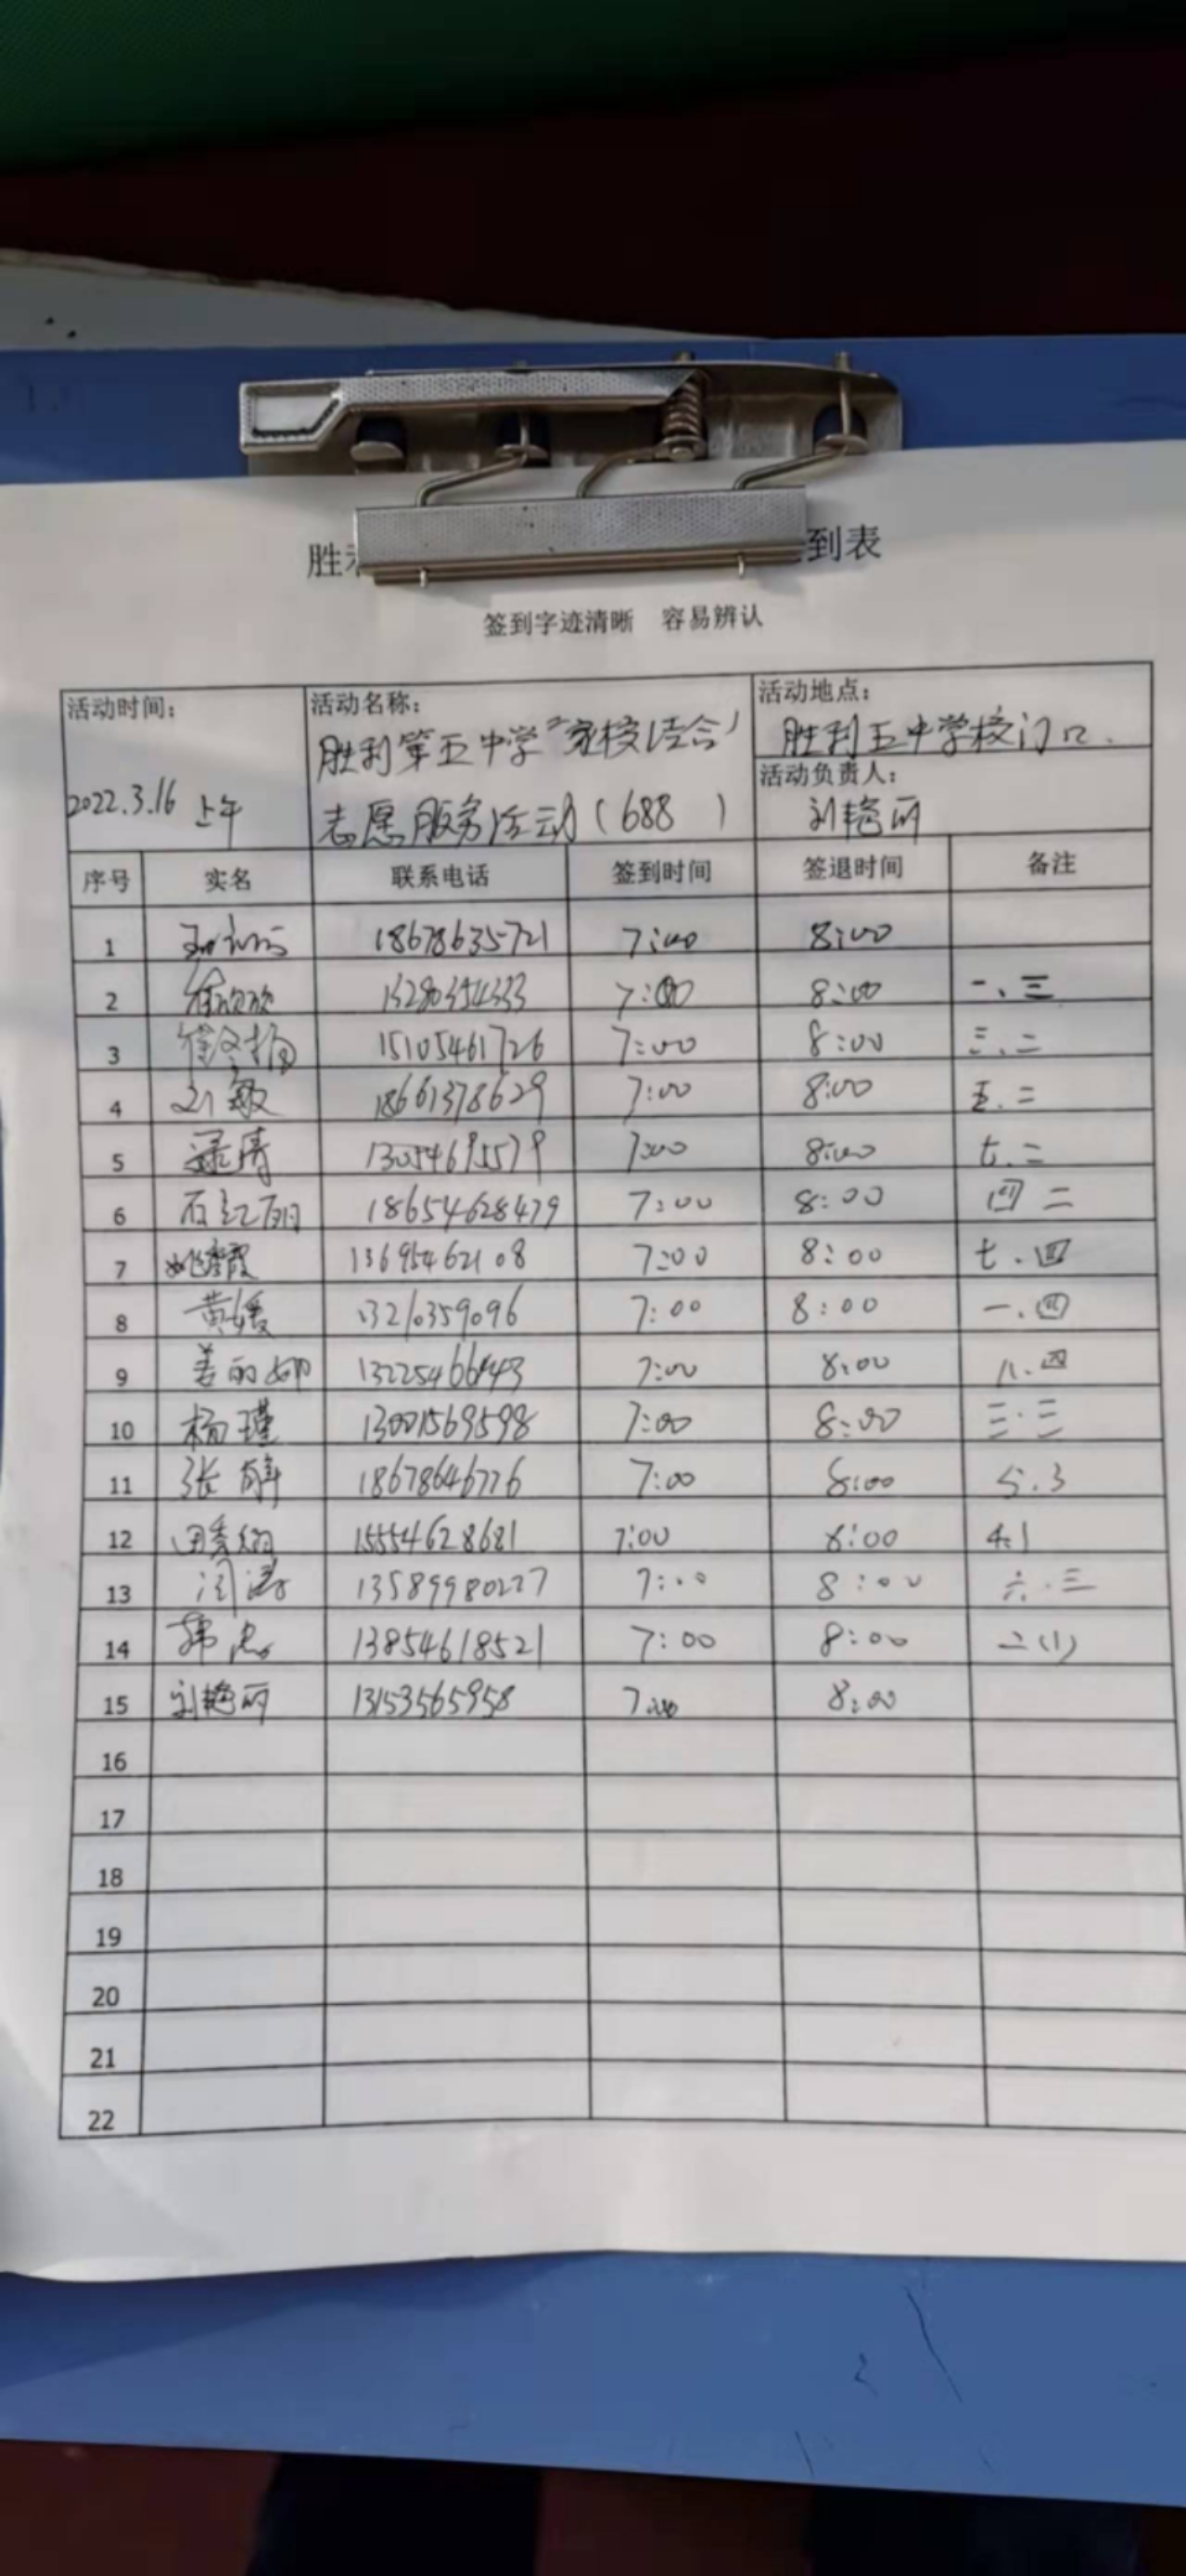 胜
到表
签到字迹清晰 容易辨认
活动时间:
2022.3.16 上午
活动名称:
胜利第五中学"家校结合"
志愿服务活动(688 )
活动地点:
胜利五中学校门口.
活动负责人:
刘艳丽
序号 实名 联系电话 签到时间 签退时间 备注
1 18678635721 7:00 8:00
2 13280354333 7:00 8:00 一、三
3 15105461726 7:00 8:00 三.二
4 刘敏 18661378629 7:00 8:00 五.二
5 7:00 8:00 七.二
6 石红丽 18654628479 7:00 8:00 四 二
7 姚霞 13695462108 7:00 8:00 七.四
8 黄媛 13210359096 7:00 8:00 一.四
9 姜丽娜 13225466443 7:00 8:00 八.四
10 杨瑾 13001569598 7:00 8:00 三.三
11 张 18678646776 7:00 8:00 5.3
12 15554628681 7:00 8:00 4.1
13 闫涛 13589980277 7:00 8:00 六.三
14 韩 13854618521 7:00 8:00 二(1)
15 刘艳丽 13153565958 7:00 8:00
16
17
18
19
20
21
22